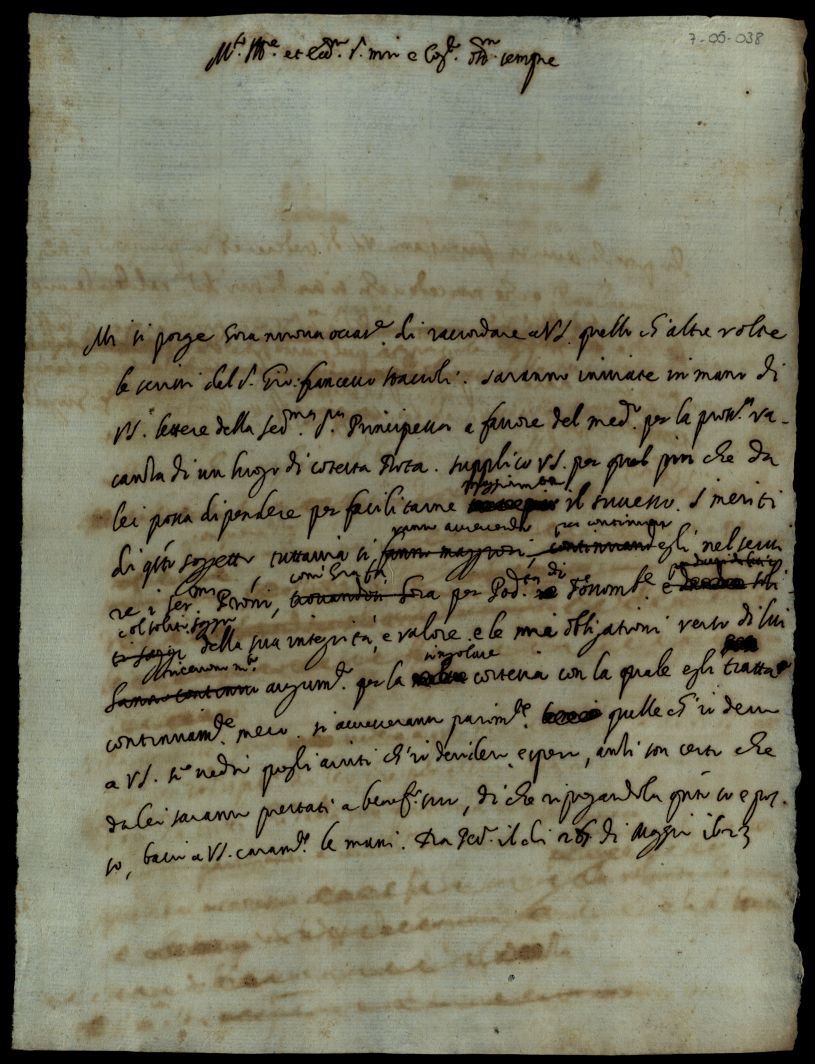 7-05-038
M.to Ill.re et Ecc.mo S. mio e sempre
Mi si porge hora nuova occas.e di raccordare a VS. quello ch'altre volte
le scrissi del S. Gio: francesco Staccoli. Saranno inviate in mano di
VS. lettere della Ser.ma S.ra Principessa a favore del med.o per la pross.a va-
canza di un luogo di cotesta Rota. supplico VS. per quel più che da
lei possa dipendere per facilitarne il successo. I meriti
di q.sto soggetto, tuttavia si fanno maggiori, continuand egli nel servi
re i Ser.mi Proni, trovandosi hora per Pod.tà di Fossomb.e e
col soliti saggi della sua integrità, e valore. e le mie obligationi verso di lui
hanno continuo augum.to per la singolare cortesia con la quale egli tratta
continuam.te meco. si accresceranno parim.te quelle ch'io devo
a VS. se vedrò quegli aiuti ch'io desidero, e spero, anzi son certo che
da lei saranno prestati a benef.o suo, di che ripregandola q.nto so e pos-
so, bacio a VS. caram.te le mani. Da Ped. il di 26 di Maggio 1623